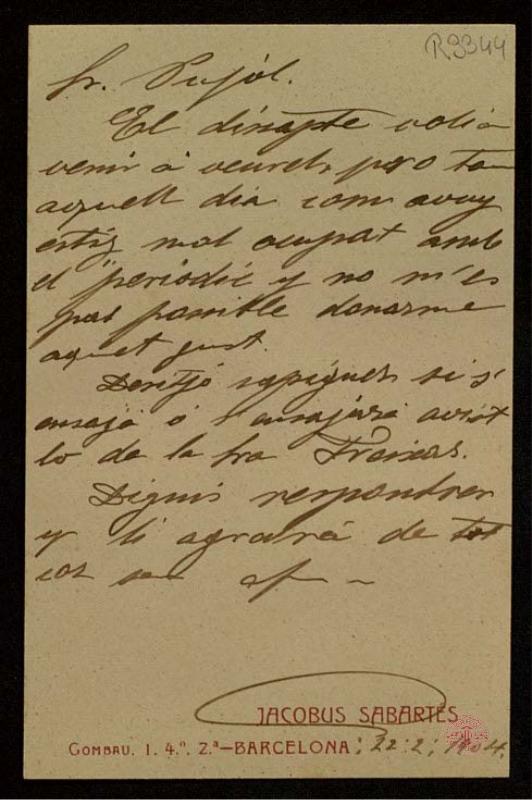 R9344
Sr. Pujól.
El disapte volia
venir á veurel, pro tan
aquell dia com avuy
estig mol ocupat amb
el "periodic y no m'es
pas possible donarme
aquet gust.
Desitjó sapiguer si s'
ensaja ó s'ensajará aviat
lo de la Sra Freixas.
Dignis respondrer
y li agrairá de tot
cor seu
JACOBUS SABARTÉS
GOMBAU. 1. 4.º. 2.ª—BARCELONA; 22: 2; 1904.